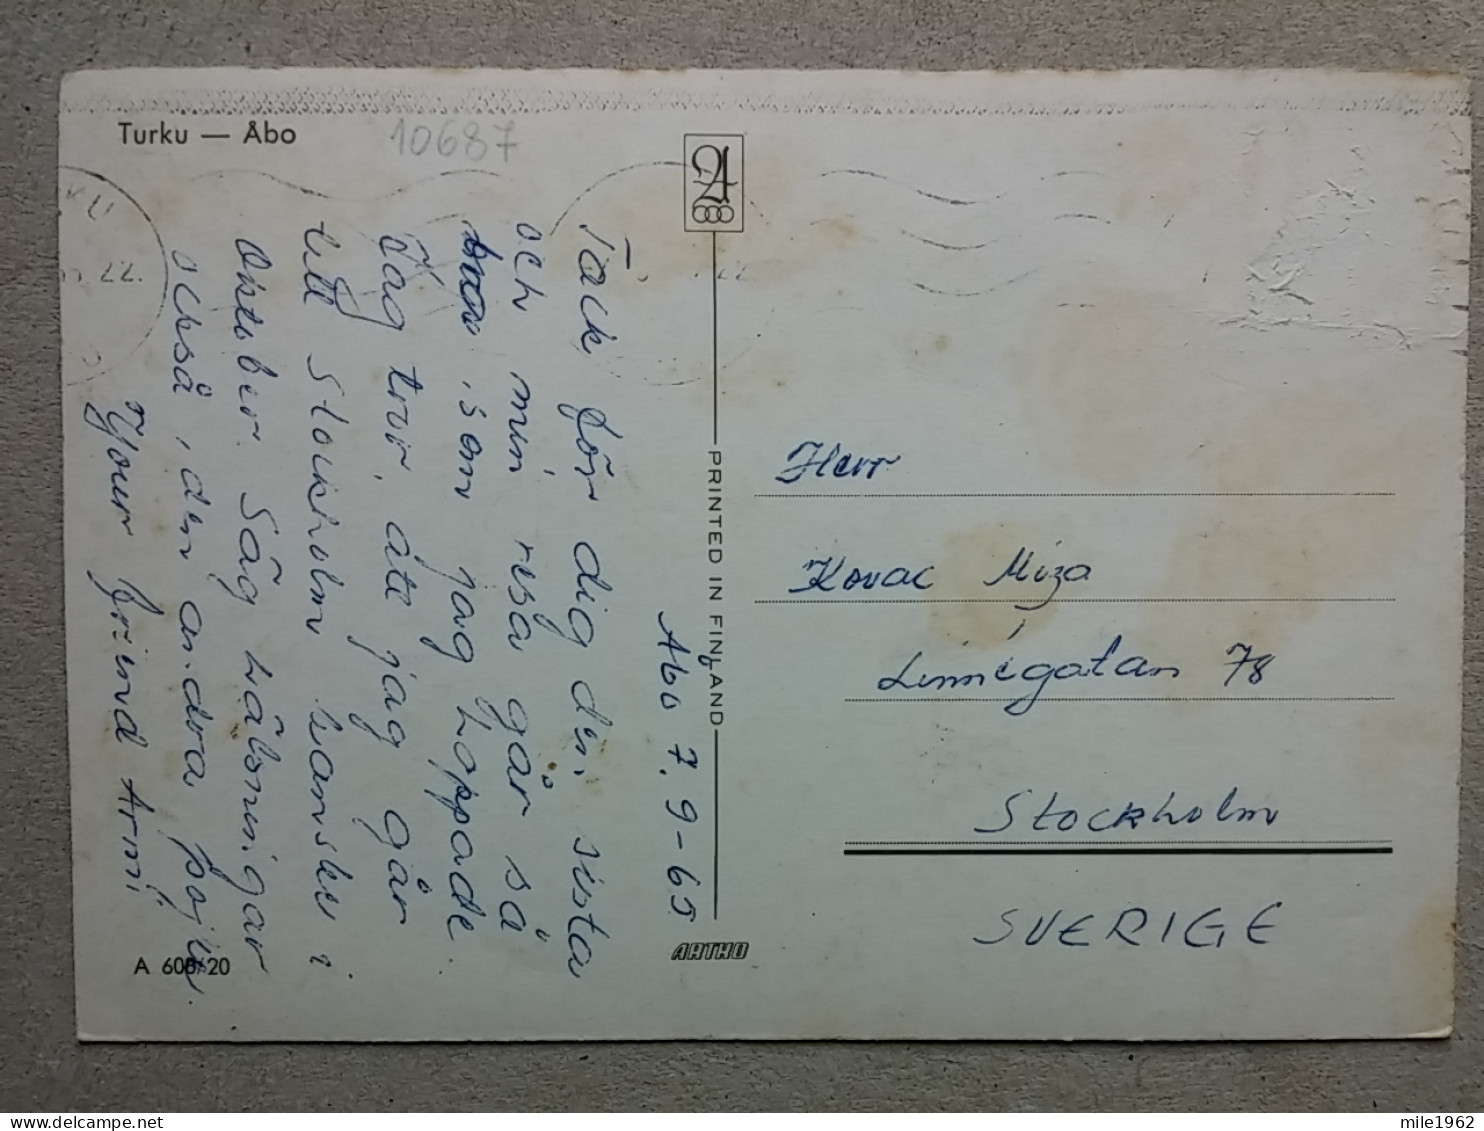 Turku — Åbo
10687
PRINTED IN FINLAND
ARTHO
A 608/20
Åbo 7.9-65
Tack för dig den sista
och min resa går så
som jag hoppade.
Jag tror, åte jag går
till Stockholm kanske i
Oktober. Säg hälsningar
också, den andra pojke.
Your Freind Armi
Herr
Kovac Miza
Linnégatan 78
Stockholm
SVERIGE
mile1962